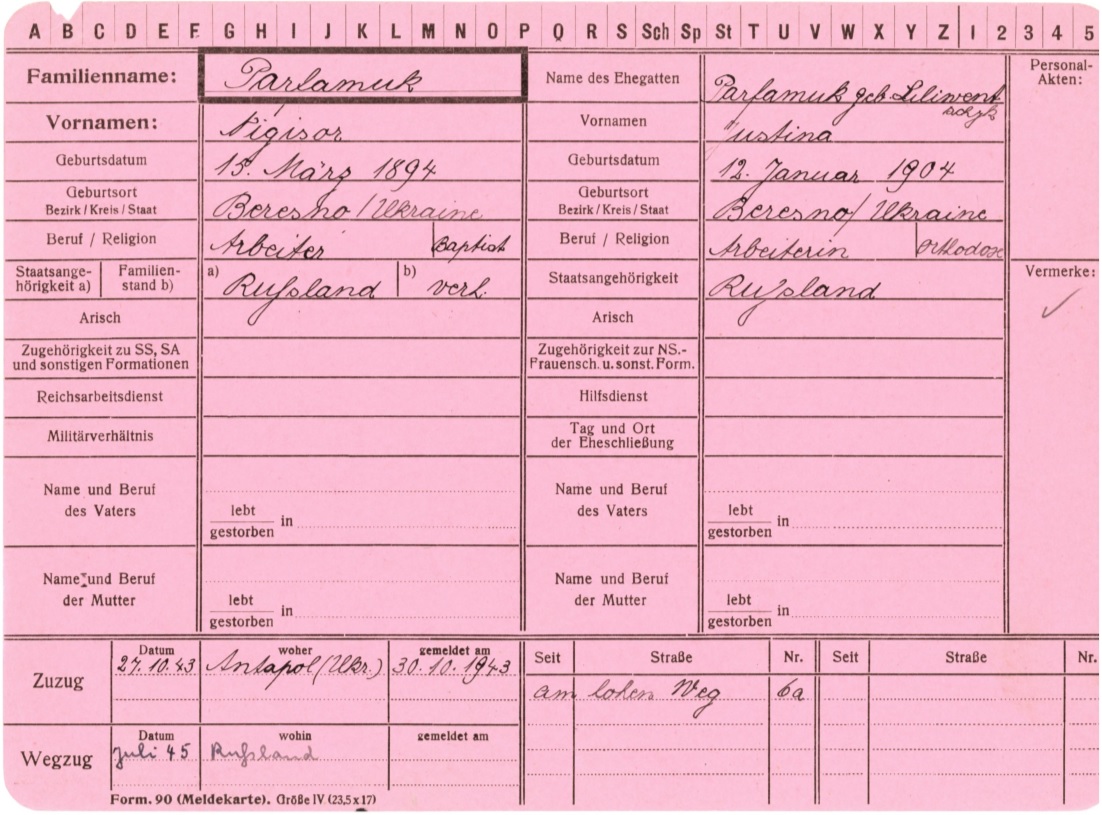 A B C D E F G H I J K L M N O P Q R S Sch Sp St T U V W X Y Z 1 2 3 4 5
Familienname: Parfamuk Name des Ehegatten Parfamuk geb. Personal-Akten:
Vornamen: Vornamen Justina
Geburtsdatum 15. März 1894 Geburtsdatum 12. Januar 1904
Geburtsort Bezirk / Kreis / Staat Beresno / Ukraine Geburtsort Bezirk / Kreis / Staat Beresno / Ukraine
Beruf / Religion Arbeiter Baptist Beruf / Religion Arbeiterin Orthodox
Staatsange-hörigkeit a) Familien-stand b) a) Rußland b) verh. Staatsangehörigkeit Rußland Vermerke: ✓
Arisch Arisch
Zugehörigkeit zu SS, SA und sonstigen Formationen Zugehörigkeit zur NS.-Frauensch. u. sonst. Form.
Reichsarbeitsdienst Hilfsdienst
Militärverhältnis Tag und Ort der Eheschließung
Name und Beruf des Vaters lebt gestorben in Name und Beruf des Vaters lebt gestorben in
Name und Beruf der Mutter lebt gestorben in Name und Beruf der Mutter lebt gestorben in
Zuzug Datum woher gemeldet am Seit Straße Nr. Seit Straße Nr.
27.10.43 Antapol (Ukr.) 30.10.1943 am lohen Weg 6a
Wegzug Datum wohin gemeldet am
Juli 45 Rußland
Form. 90 (Meldekarte). Größe IV (23,5 x 17)